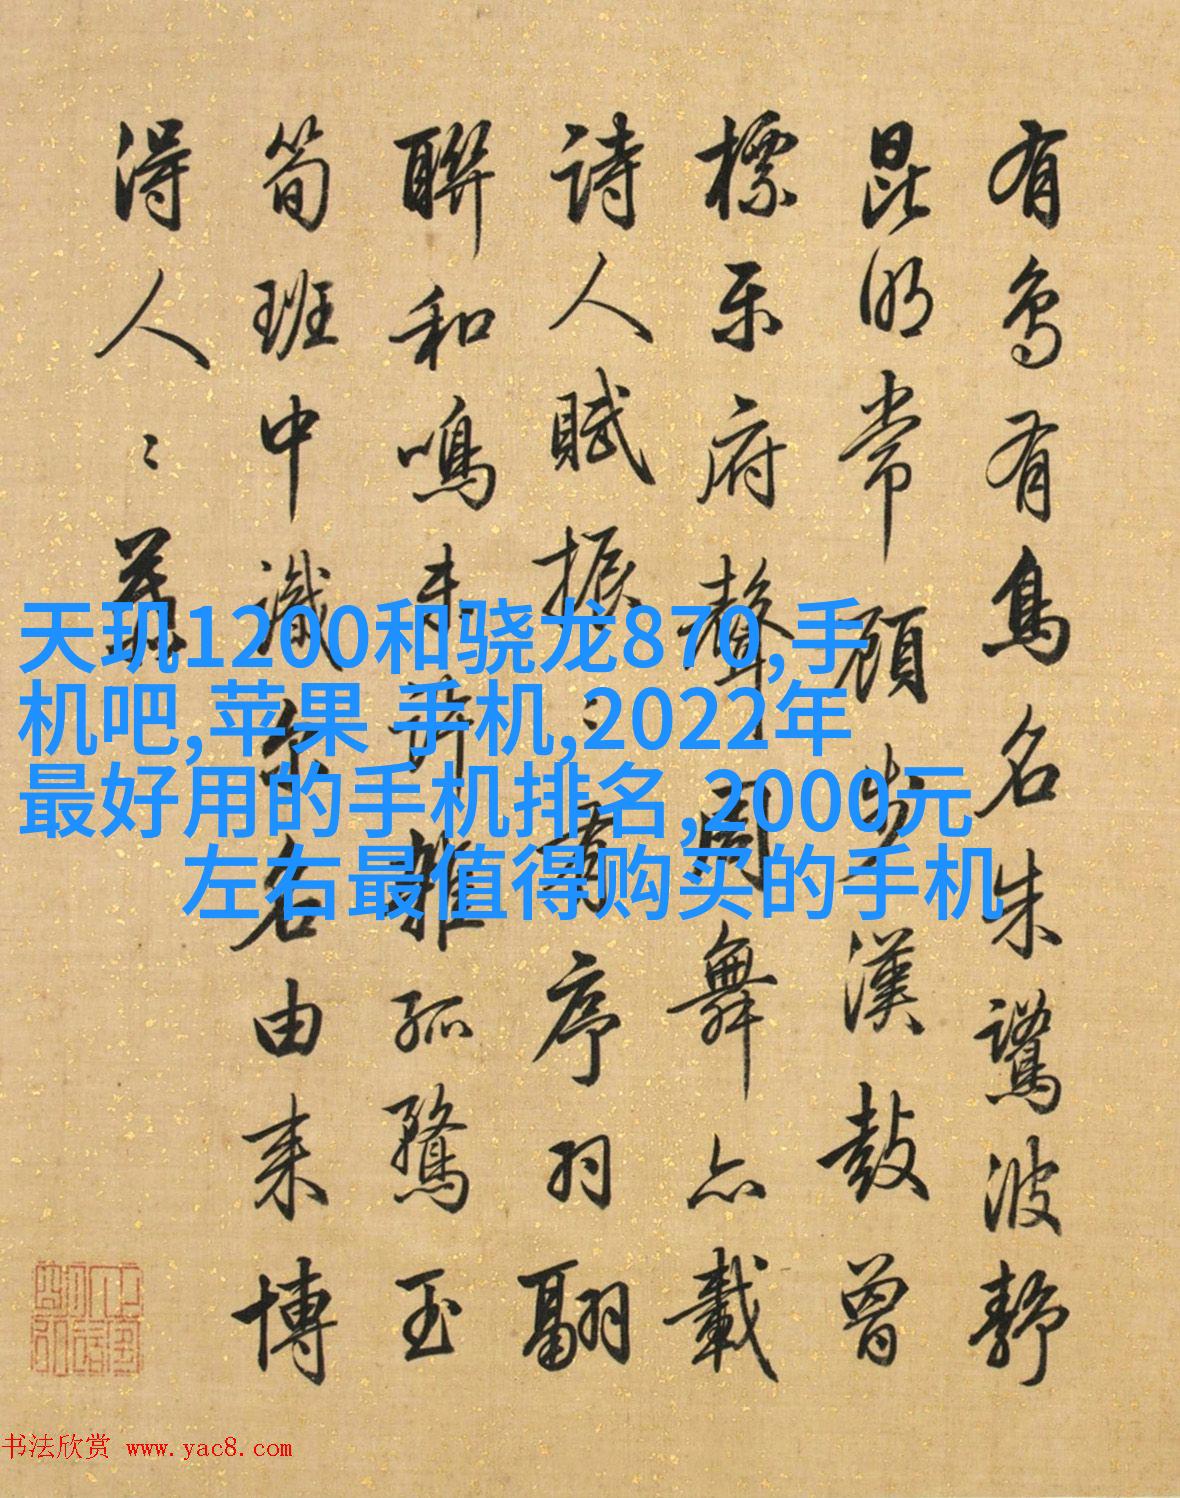 有鳥有鳥名朱鷺波靜
昆明常顧步漢鼓曾
標樂府聲周舞亦載
詩人賦振〻有序羽翮
聯和鳴未許雜孤鶩玉
筍班中識名由来博
得人〻
天玑1200和骁龙870,手
机吧,苹果 手机,2022年
最好用的手机排名,2000元
左右最值得购买的手机
书法欣赏 www.yac8.com